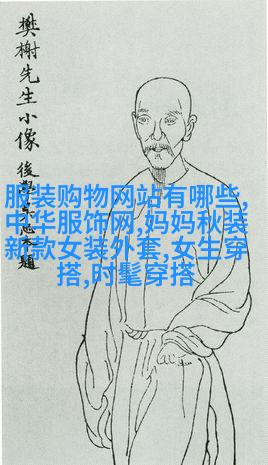 樊榭先生小像
後學
題
服装购物网站有哪些,
中华服饰网,妈妈秋装
新款女装外套,女生穿
搭,时髦穿搭